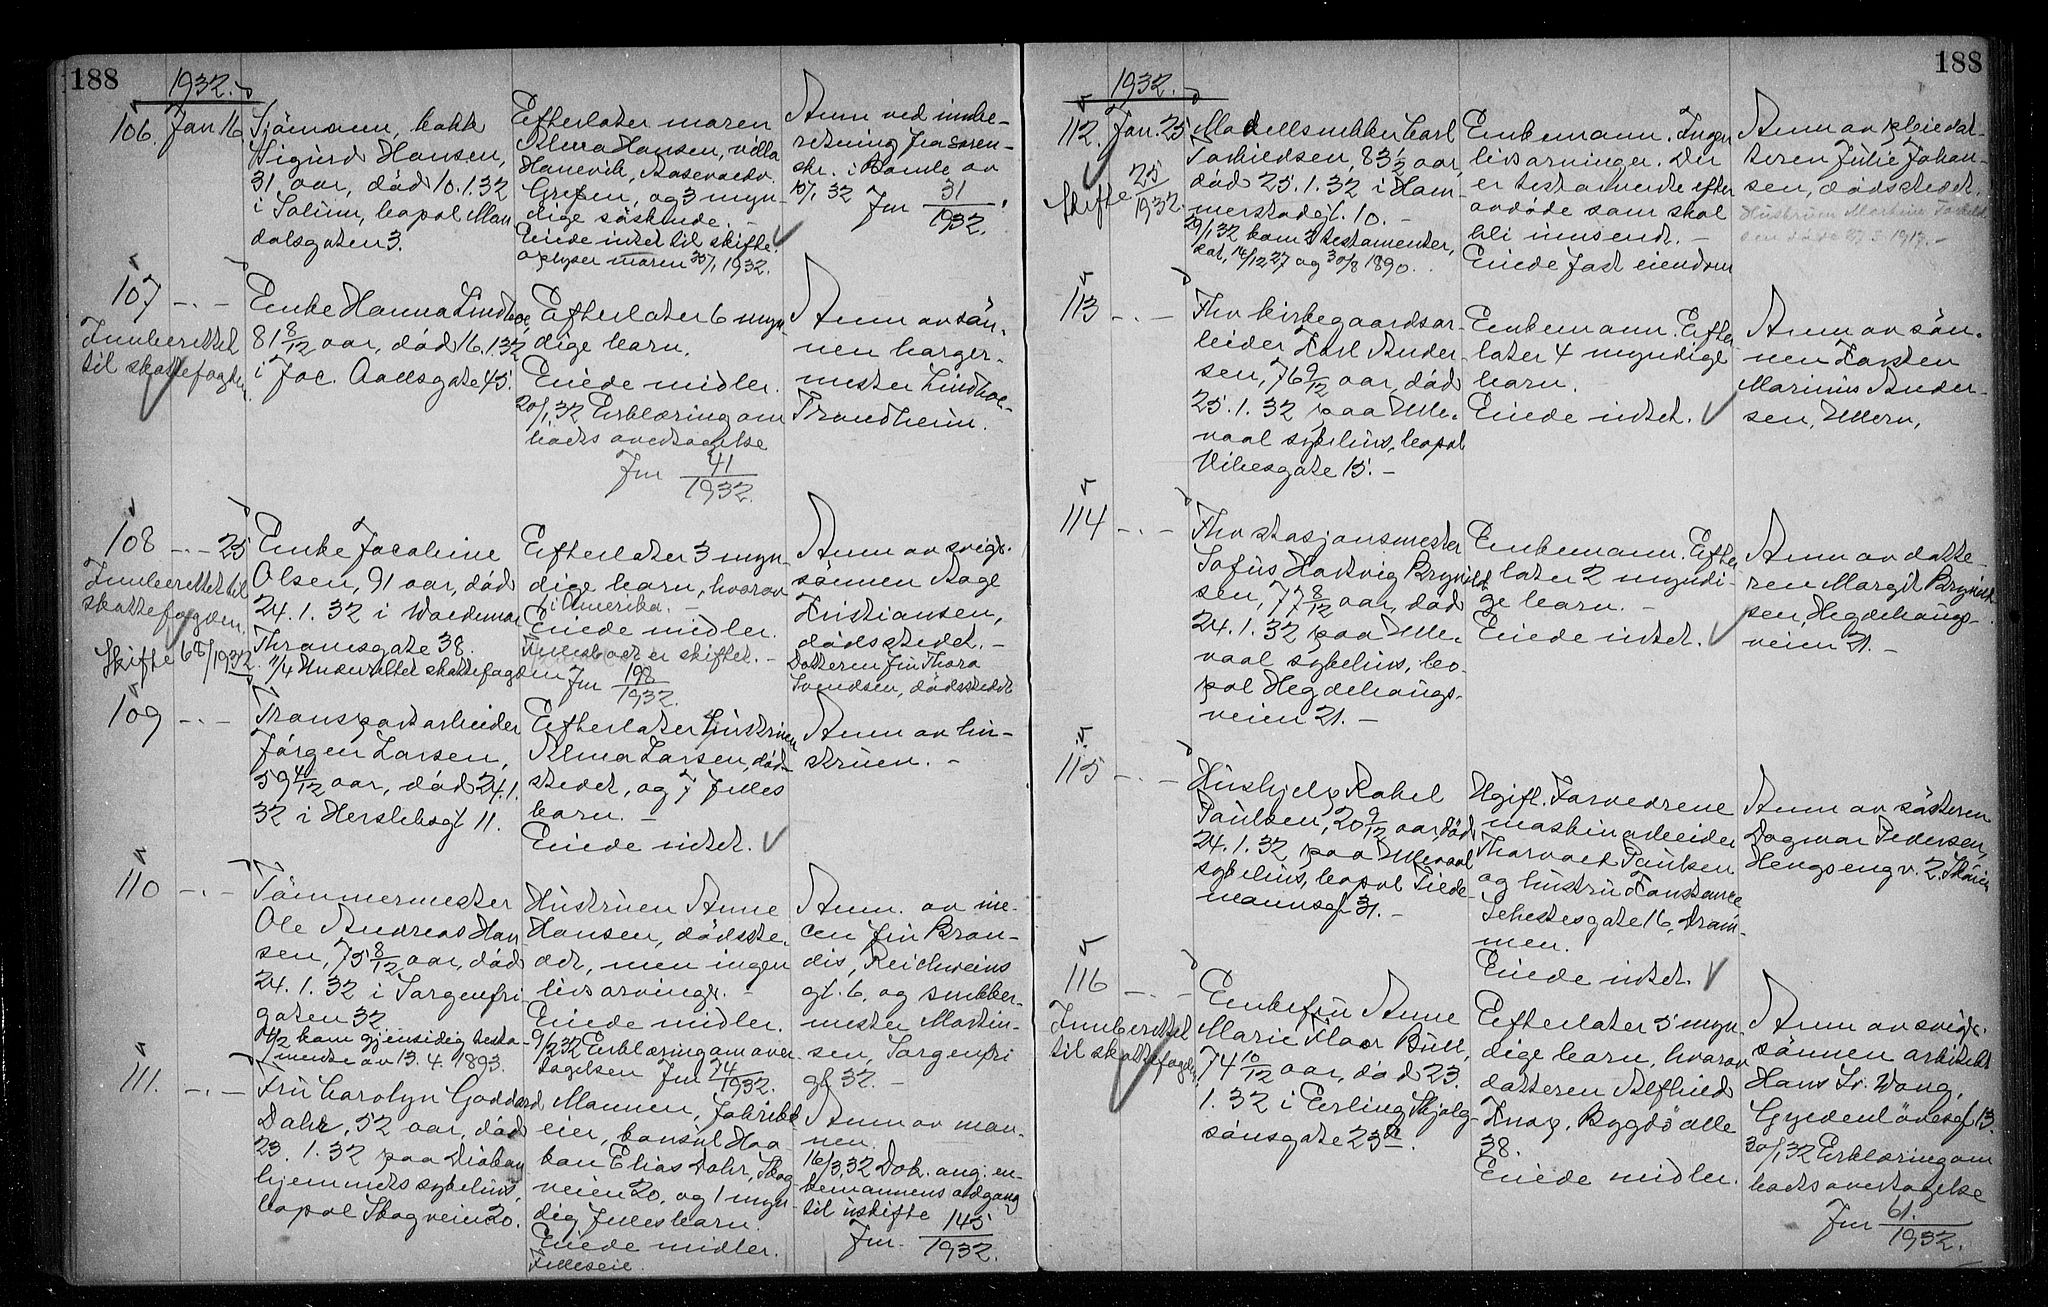 188
1932.
106. Jan 16
Sjömann, kokk
Sigurd Hansen,
31 aar, död 10.1.32
i Solum, bopel Man
dalsgaten 3.
Efterlater moren
Alma Hansen, villa
Hanevik, Aasevaedv.
Grefsen, og 3 myn
dige söskende. -
Eiede intet til skifte
oplyser moren 30/1 1932.
Anm ved innbe-
retning fra soren-
skr. i Bamle av
10/1 32 Jnr 31/1932.
107 -.-
Innberettet
til skattefogden
Enke Hanna Lindboe,
81 8/12 aar, död 16.1.32
i Joc. Aallsgate 45.
Efterlater 6 myn
dige barn.
Eiede midler.
20/1 32 Erklæring om
boets overtagelse
Jnr 41/1932.
Anm av sön-
nen borger-
mester Lindboe
Trondheim.
108 -.- 25
Innberettet til
skattefogden.
Skifte 68/1932
Enke Jacobine
Olsen, 91 aar, död
24.1.32 i Waldemar
Thranesgate 38.
11/4 Underrettet skattefogden
Efterlater 3 myn
dige barn, hvorav
i Amerika. -
Eiede midler.
Fellesboet er skiftet. -
Jnr 198/1932.
Anm av svige-
sönnen Aage
Kristiansen,
dödsstedet. -
Datteren fru Thora
Svendsen, dödsstedet
109 -.-
Transportarbeider
Jörgen Larsen,
59 4/12 aar, död 24.1.
32 i Herslebsgt 11.
Efterlater hustruen
Alma Larsen, död-
stedet, og 7 felles
barn. -
Eiede intet.
Anm av hu-
struen. -
110 -.-
Tömmermester
Ole Andreas Han
sen, 75 8/12 aar, död
24.1.32 i Sorgenfri
gaten 32
4/2 kom gjensidig testa-
mente av 13.4.1893.
Hustruen Anne
Hansen, dödsste-
det, men ingen
livsarvinger. -
Eiede midler.
9/2 32 Erklæring om over
tagelsen Jnr 74/1932.
Anm. av nie-
cen fru Bran-
dis, Reichweins
gt. 6, og snekker-
mester Martin-
sen, Sorgenfri
gt 32. -
111. -.-
Fru Carolyn Goddard
Dahr, 52 aar, död
23.1.32 paa Diakon
hjemmets sykehus,
bopel Skogveien 20.
Mannen, fabrikk
eier, konsul Haa
kon Elias Dahr, Skog
veien 20, og 1 myn-
dig felles barn.
Eiede midler.
Felleseie.
Anm av man-
nen.
16/3 32 Dok. ang. en-
kemannens adgang
til uskifte
Jnr. 145/1932.
188
1932.
112. Jan. 25
Skifte 25/1932.
Modellsnekker Carl
Torkildsen, 83 1/2 aar,
död 25.1.32 i Ham
merstadgt. 10. -
29/1 32 kom 2 testamenter,
dat, 14/12 27 og 30/8 1890.
Enkemann. Ingen
livsarvinger. Der
er testamente efter
avdöde som skal
bli innsendt. -
Eiede fast eiendom
Anm av pleiedat-
teren Julie Johan-
sen, dödsstedet.
Hustruen Martine Torkild
sen döde 27.5.1917. -
113 -.-
Fhv kirkegaardsar-
beider Karl Ander
sen, 76 9/12 aar, död
25.1.32 paa Ulle-
vaal sykehus, bopel
Vibesgate 15. -
Enkemann. Efter
later 4 myndige
barn.
Eiede intet.
Anm av sön-
nen Karsten
Marinius Ander-
sen, Ullern,
114 -.-
Fhv stasjonsmester
Sofus Hartvig Brynild
sen, 77 8/12 aar, död
24.1.32 paa Ulle-
vaal sykehus, bo-
pel Hegdehaugs-
veien 21. -
Enkemann. Efter
later 2 myndi-
ge barn. -
Eiede intet.
Anm av datte-
ren Margit Brynild
sen, Hegdehaugs-
veien 21. -
115 -.-
Hushjelp Rakel
Paulsen, 20 9/12 aar, död
24.1.32 paa Ullevaal
sykehus, bopel Tiede-
mannsgt 31. -
Ugift. Forældrene
maskinarbeider
Thorvald Paulsen
og hustru Konstance
Sehestesgate 16, Dram-
men.
Eiede intet.
Anm av sösteren
Dagmar Pedersen,
Hengsengv. 2. Skøien
116 -.-
Innberettet
til skattefogden
Enkefru Anne
Marie Floor Bull,
74 10/12 aar, död 23.
1.32 i Erling Skjalg-
sönsgate 23 a.
Efterlater 5 myn-
dige barn, hvorav
datteren Alfhild
Knap, Bygdö alle
38.
Eiede midler.
Anm av svige-
sönnen arkitekt
Hans Sv. Wang,
Gyldenlövesgt 13.
30/1 32 Erklæring om
boets overtagelse
Jnr 61./1932.